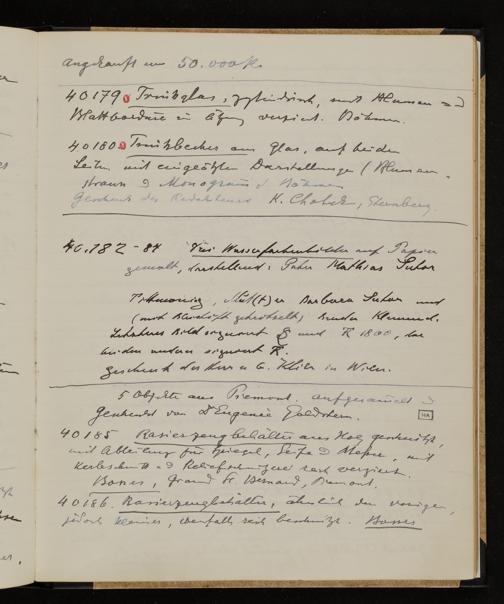 angekauft um 50.000 K
40179 Trinkglas, zylindrisch, mit Blumen
in Ätzung verziert. Böhmen.
40180 Trinkbecher aus Glas, auf beiden
Seiten mit eingeätzten Darstellungen (Blumen-
strauss & Monogramm) Böhmen
Geschenk des Redakteurs K. Sternberg.
40.182 - 84 Drei Wasserfarbenbilder auf Papier
gemalt, darstellend: Mathias Sutor
Barbara Sutor und
(mit Bleistift) Bruder
Bild signiert und 1800, die
beiden anderen signiert
Geschenk des Herrn Klier in Wien.
5 Objekte aus Piemont. aufgesammelt &
Geschenkt von Dr Eugenie Goldstern.
HA
40185 Rasierzeugbehälter aus Holz geschnitzt,
mit Abteilung für Spiegel, Seife & Messer, mit
Kerbschnitt reich verziert.
Bosses, Grand St Bernard, Piemont.
40186. Rasierzeugbehälter, ähnlich dem vorigen,
jedoch kleiner, ebenfalls reich beschnitzt. Bosses